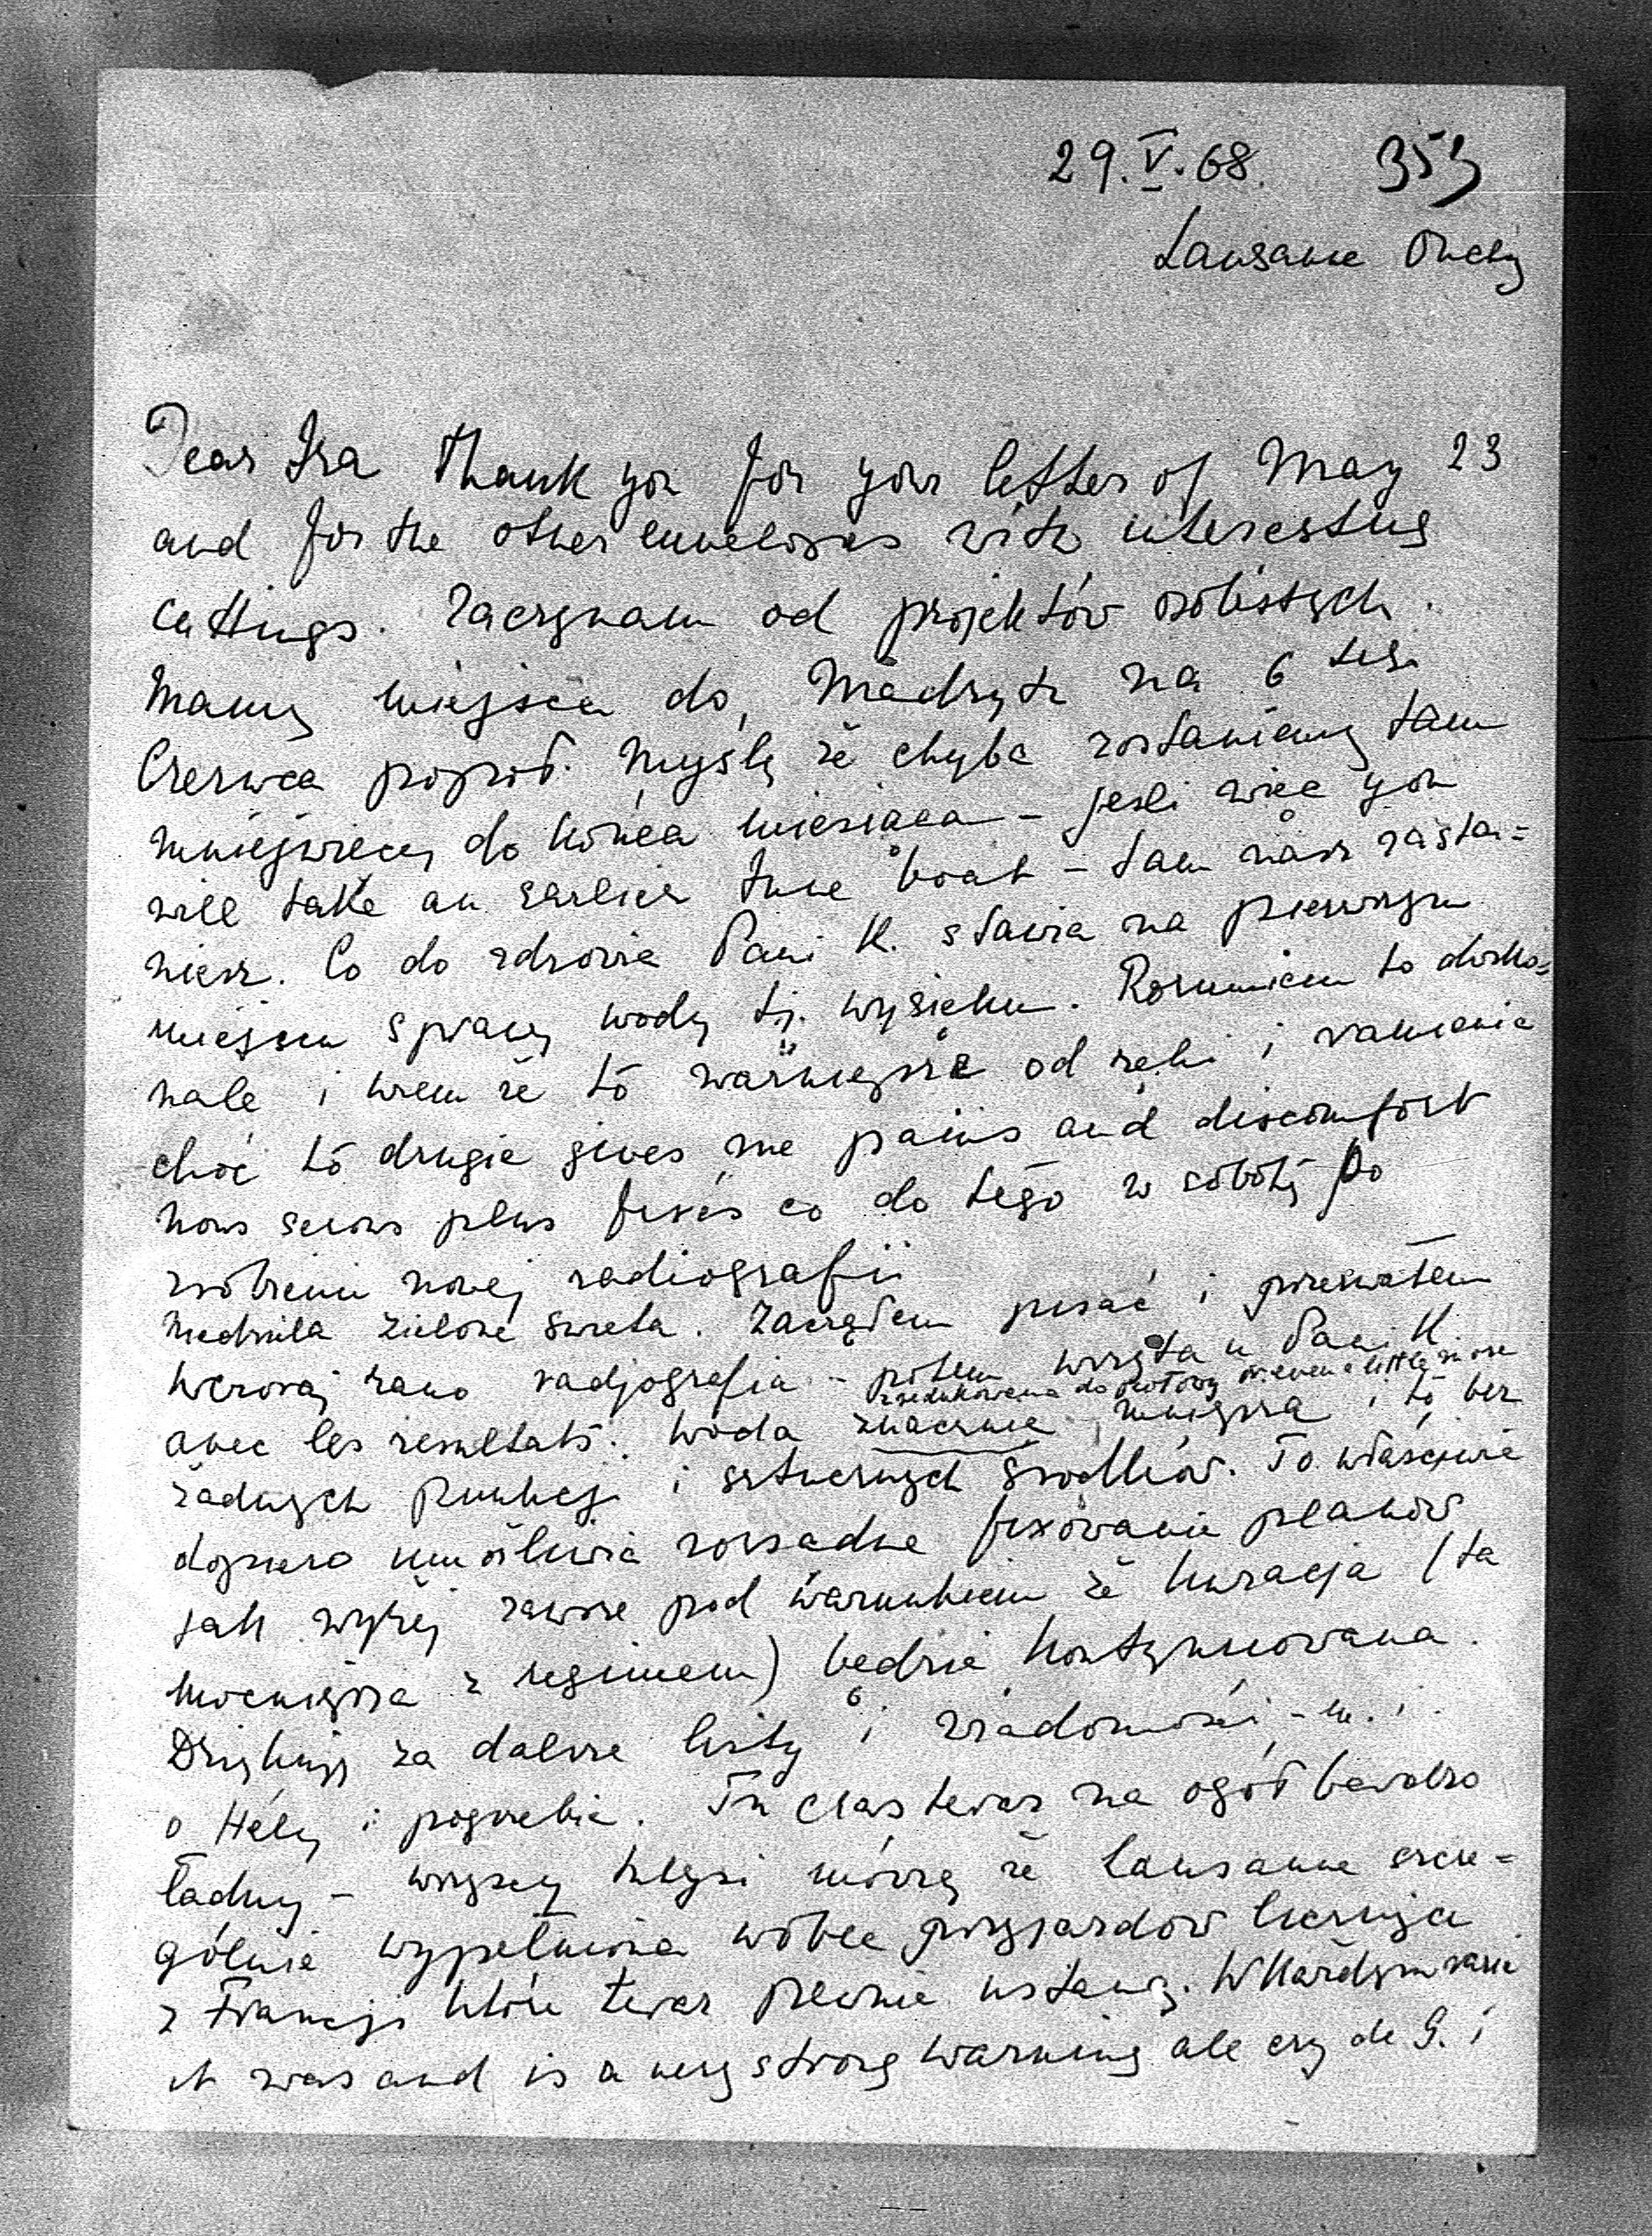 29.V.68. 353
Lausanne Ouchy
Dear Ira Thank you for your letter of May 23
and for the other envelopes with interesting
cuttings. Zaczynam od projektów osobistych.
Mamy miejsca do Madrytu na 6 tego
Czerwca popoł. Myślę że chyba zostaniemy tam
mniejwięcej do końca miesiąca – jeśli więc you
will take an earlier June boat – tam nasz zasta=
niesz. Co do zdrowia Pani K. stawia na pierwszym
miejscu sprawę wody tj. wysięku. Rozumiem to dosko=
nale i wiem że to ważniejsze od ręki i ramienia
choć to drugie gives me pains and discomfort
nous serons plus fixés co do tego w sobotę po
zrobieniu nowej radiografii
Niedziela Zielone Święta. Zacząłem pisać i przerwałem
wczoraj rano radjografia – potem wizyta u Pani K
avec les resultats: woda znacznie mniejsza i to bez
zredukowana do połowy or even a little more
żadnych punkcji i sztucznych środków. To właściwie
dopiero umożliwia rozsądne fixowanie planów
jak wyżej zawsze pod warunkiem że kuracja (ta
mocniejsza z regimem) będzie kontynuowana.
Dziękuję za dalsze listy i wiadomości – m.i.
o Heli i pogrzebie. Tu czas teraz na ogół bardzo
ładny – wszyscy tutejsi mówią że Lausanne szcze=
gólnie wypełniona wobec przyjazdów licznych
z Francji które teraz pewnie ustaną. W każdym razie
it was and is a very strong warning ale czy de G. i